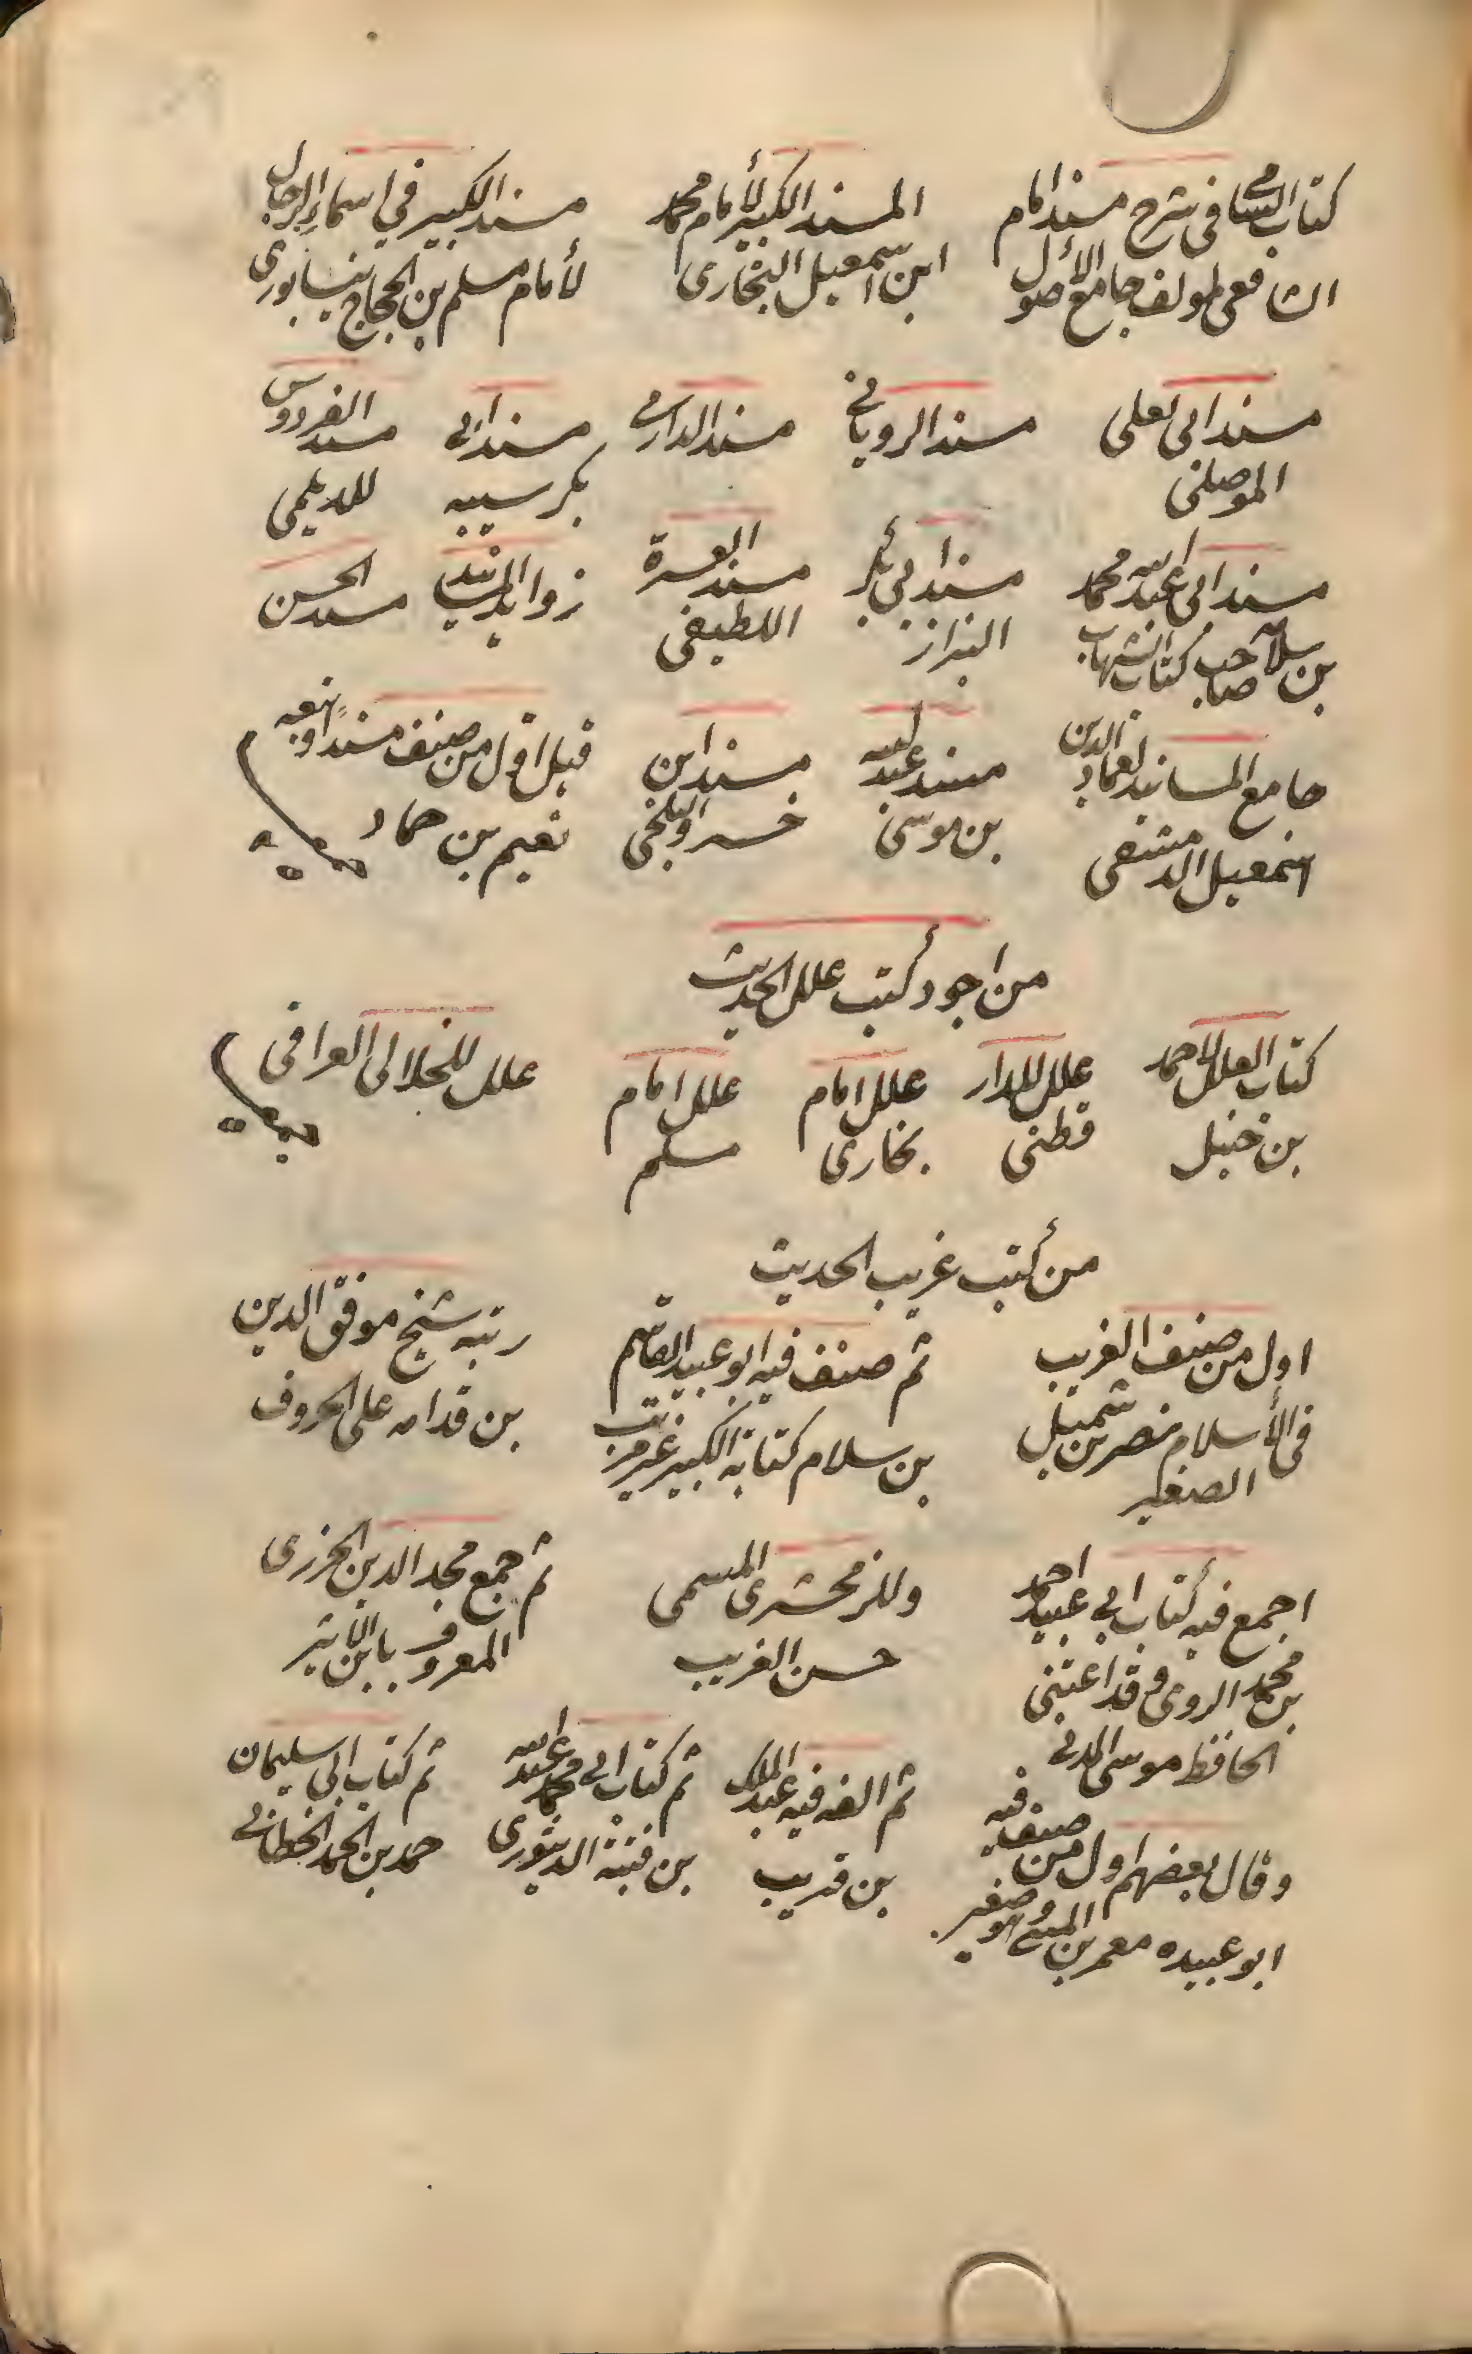 كتاب الشافي في شرح مسند امام
الشافعي لمولف جامع الأصول
المسند الكبير لأمام محمد
ابن اسمعيل البخاري
مسند الكبير في اسماء الرجال
لأمام مسلم بن الحجاج نيسابوري
مسند ابي يعلى
الموصلي
مسند الروياني
مسند الدارمي
مسند ابي
بكر شيبه
مسند الفردوس
للديلمي
مسند ابي عبد الله محمد
بن سلامه صاحب كتاب الشهاب
مسند ابي بكر
البزاز
مسند العسرة
اللطيفي
زوايد المسانيد
مسند الحسن
جامع المسانيد لعماد الدين
اسمعيل الدمشقي
مسند عبد الله
بن موسى
مسند ابن
خسرو البلخي
قيل اول من صنف مسند او تبعه
نعيم بن حماد
من اجود كتب علل الحديث
كتاب العلل لاحمد
بن حنبل
علل للدار
قطني
علل امام
بخاري
علل امام
مسلم
علل للخلال العراقي
من كتب غريب الحديث
اول من صنف الغريب
في الأسلام نضر بن شميل
الصغير
ثم صنف فيه ابو عبيد القاسم
بن سلام كتابه الكبير غير مرتب
رتبه شيخ موفق الدين
بن قدامه على الحروف
اجمع فيه كتاب ابي عبيد احمد
بن محمد الروي وقد اعتنى
الحافظ موسى المدني
وللزمخشري المسمى
حسن الغريب
ثم جمع مجد الدين الجزري
المعروف بابن الأثير
وقال بعضهم اول من صنف فيه
ابو عبيده معمر بن المثنى وهو صغير
ثم الف فيه عبد الملك
بن قريب
ثم كتاب ابي محمد عبد الله
بن قتيبة الدينوري
ثم كتاب ابي سليمان
حمد بن الحمد الخطابي